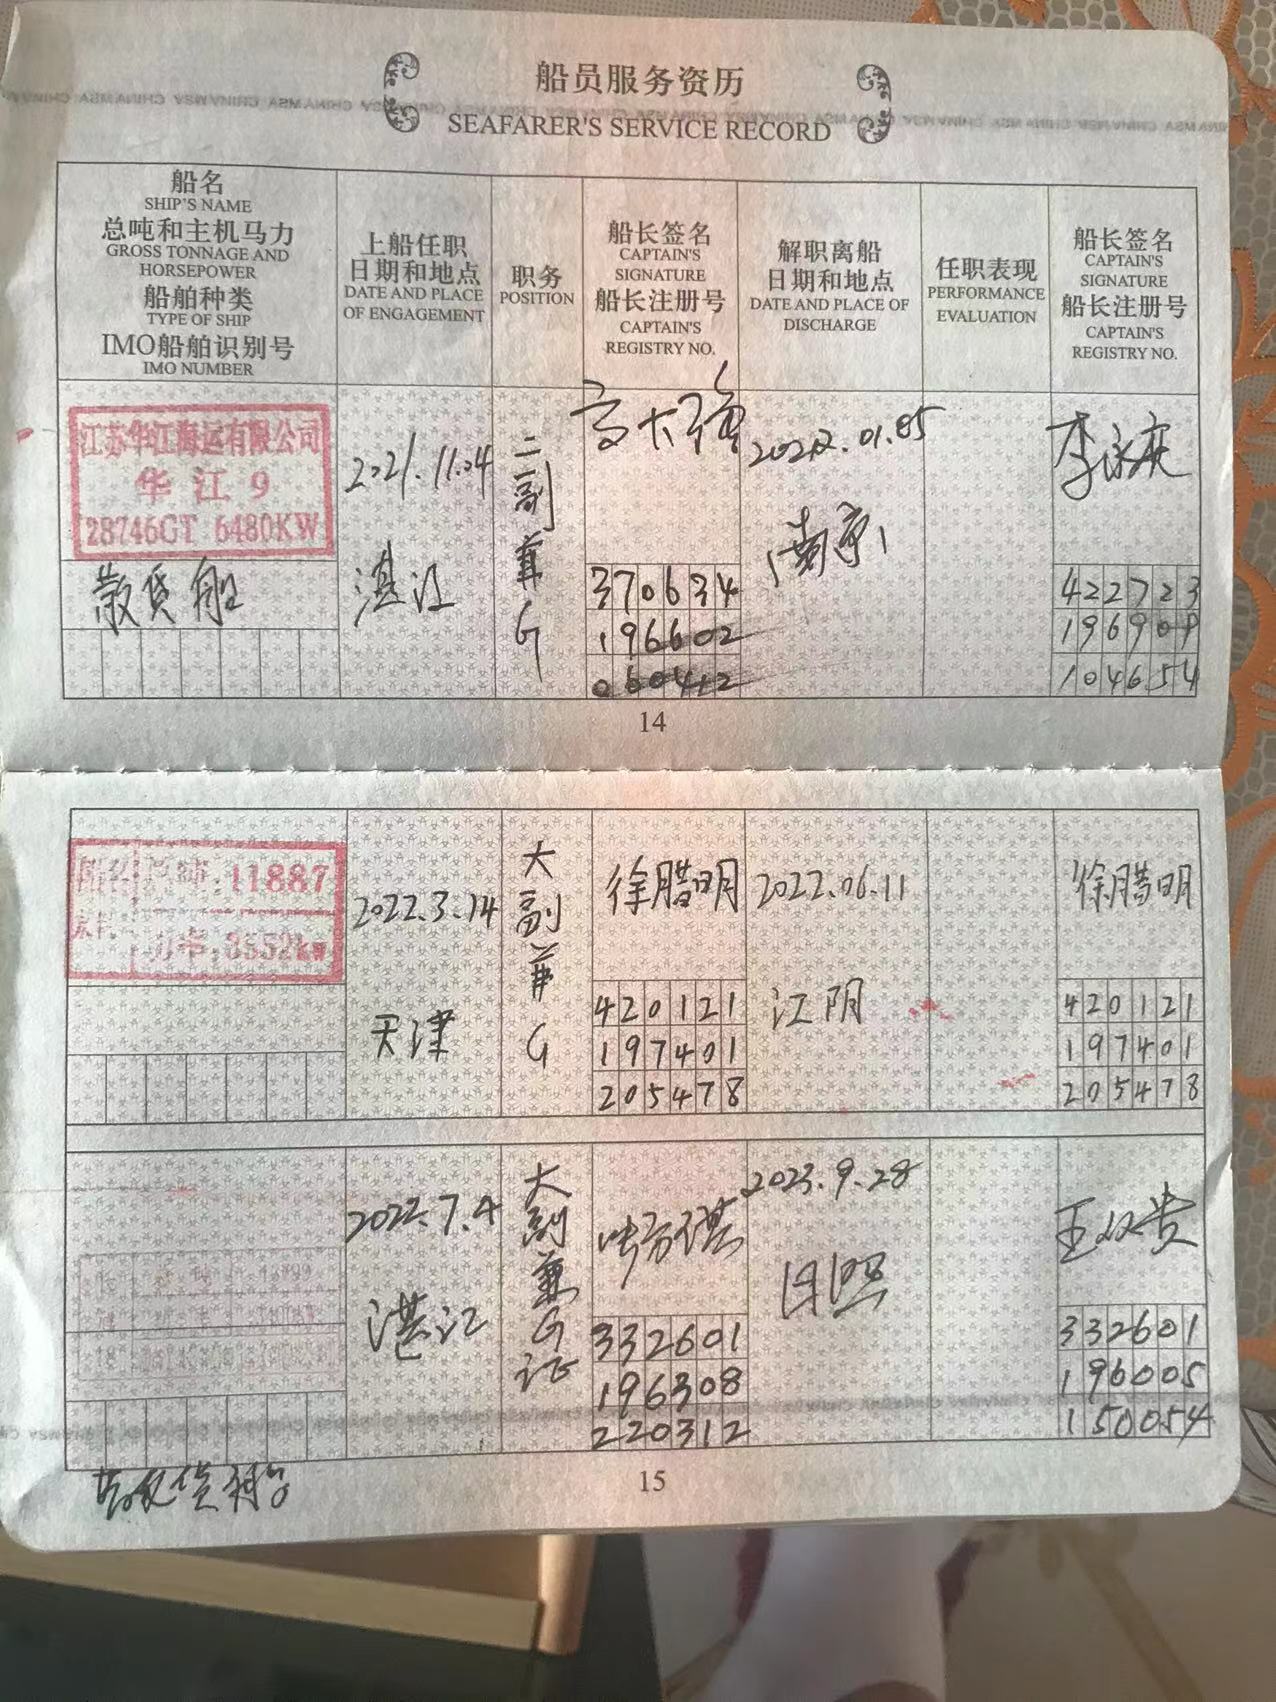 船员服务资历
SEAFARER'S SERVICE RECORD
船名
SHIP'S NAME
总吨和主机马力
GROSS TONNAGE AND
HORSEPOWER
船舶种类
TYPE OF SHIP
IMO船舶识别号
IMO NUMBER
上船任职
日期和地点
DATE AND PLACE
OF ENGAGEMENT
职务
POSITION
船长签名
CAPTAIN'S
SIGNATURE
船长注册号
CAPTAIN'S
REGISTRY NO.
解职离船
日期和地点
DATE AND PLACE OF
DISCHARGE
任职表现
PERFORMANCE
EVALUATION
船长签名
CAPTAIN'S
SIGNATURE
船长注册号
CAPTAIN'S
REGISTRY NO.
江苏华江海运有限公司
华江9
28746GT 6480KW
散货船
2021.11.04
湛江
二副兼G
370634
196602
南京
422723
104654
14
11887
3552kw
2022.3.14
天津
大副兼G
徐腊明
420121
197401
205478
2022.06.11
江阴
徐腊明
420121
197401
205478
2022.7.4
湛江
大副兼G证
332601
196308
220312
2023.9.28
日照
332601
196005
150054
15